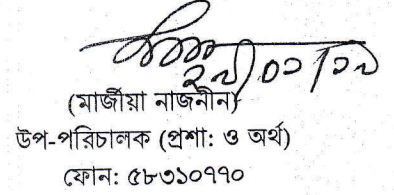 ২৯/০১/১৯
(মার্জীয়া নাজনীন)
উপ-পরিচালক (প্রশা: ও অর্থ)
ফোন: ৫৮৩১০৭৭০